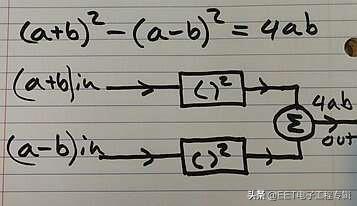 (a+b)² - (a-b)² = 4ab
(a+b)in
( )²
Σ
4ab
out
(a-b)in
( )²
头条 @EET电子工程专辑